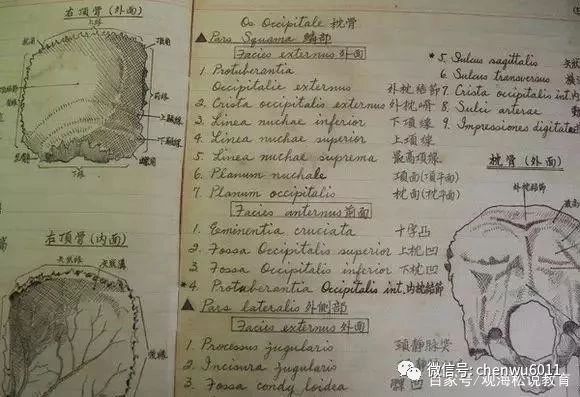 右頂骨 (外面)
上緣
枕角
頂角
前緣
上顳線
下顳線
蝶角
下緣
右頂骨 (内面)
矢狀緣
矢狀溝
後緣
Os Occipitale 枕骨
▲ Pars Squama 鱗部
Facies externus 外面
1. Protuberantia
Occipitalie externus 外枕結節
2. Crista occipitalis externus 外枕嵴
3. Linea nuchae inferior 下項線
4. Linea nuchae superior 上項線
5. Linea nuchae suprema 最高項線
6. Planum nuchale 項面(項平面)
7. Planum occipitalis 枕面(枕平面)
Facies internus 前面
1. Eminentia cruciata 十字凸
2. Fossa Occipitalis superior 上枕凹
3. Fossa Occipitalis inferior 下枕凹
*4. Protuberantia Occipitalis int. 内枕結節
▲ Pars lateralis 外側部
Facies externus 外面
1. Processus jugularis 頸静脉突
2. Incisura jugularis
3. Fossa condyloidea 髁凹
*5. Sulcus sagittalis 矢狀
6. Sulcus transversus 橫
7. Crista occipitalis int. 内
8. Sulci arteriae
9. Impressiones digitatae
枕骨 (外面)
外枕結節
微信号: chenwu6011
百家号/观海松说教育